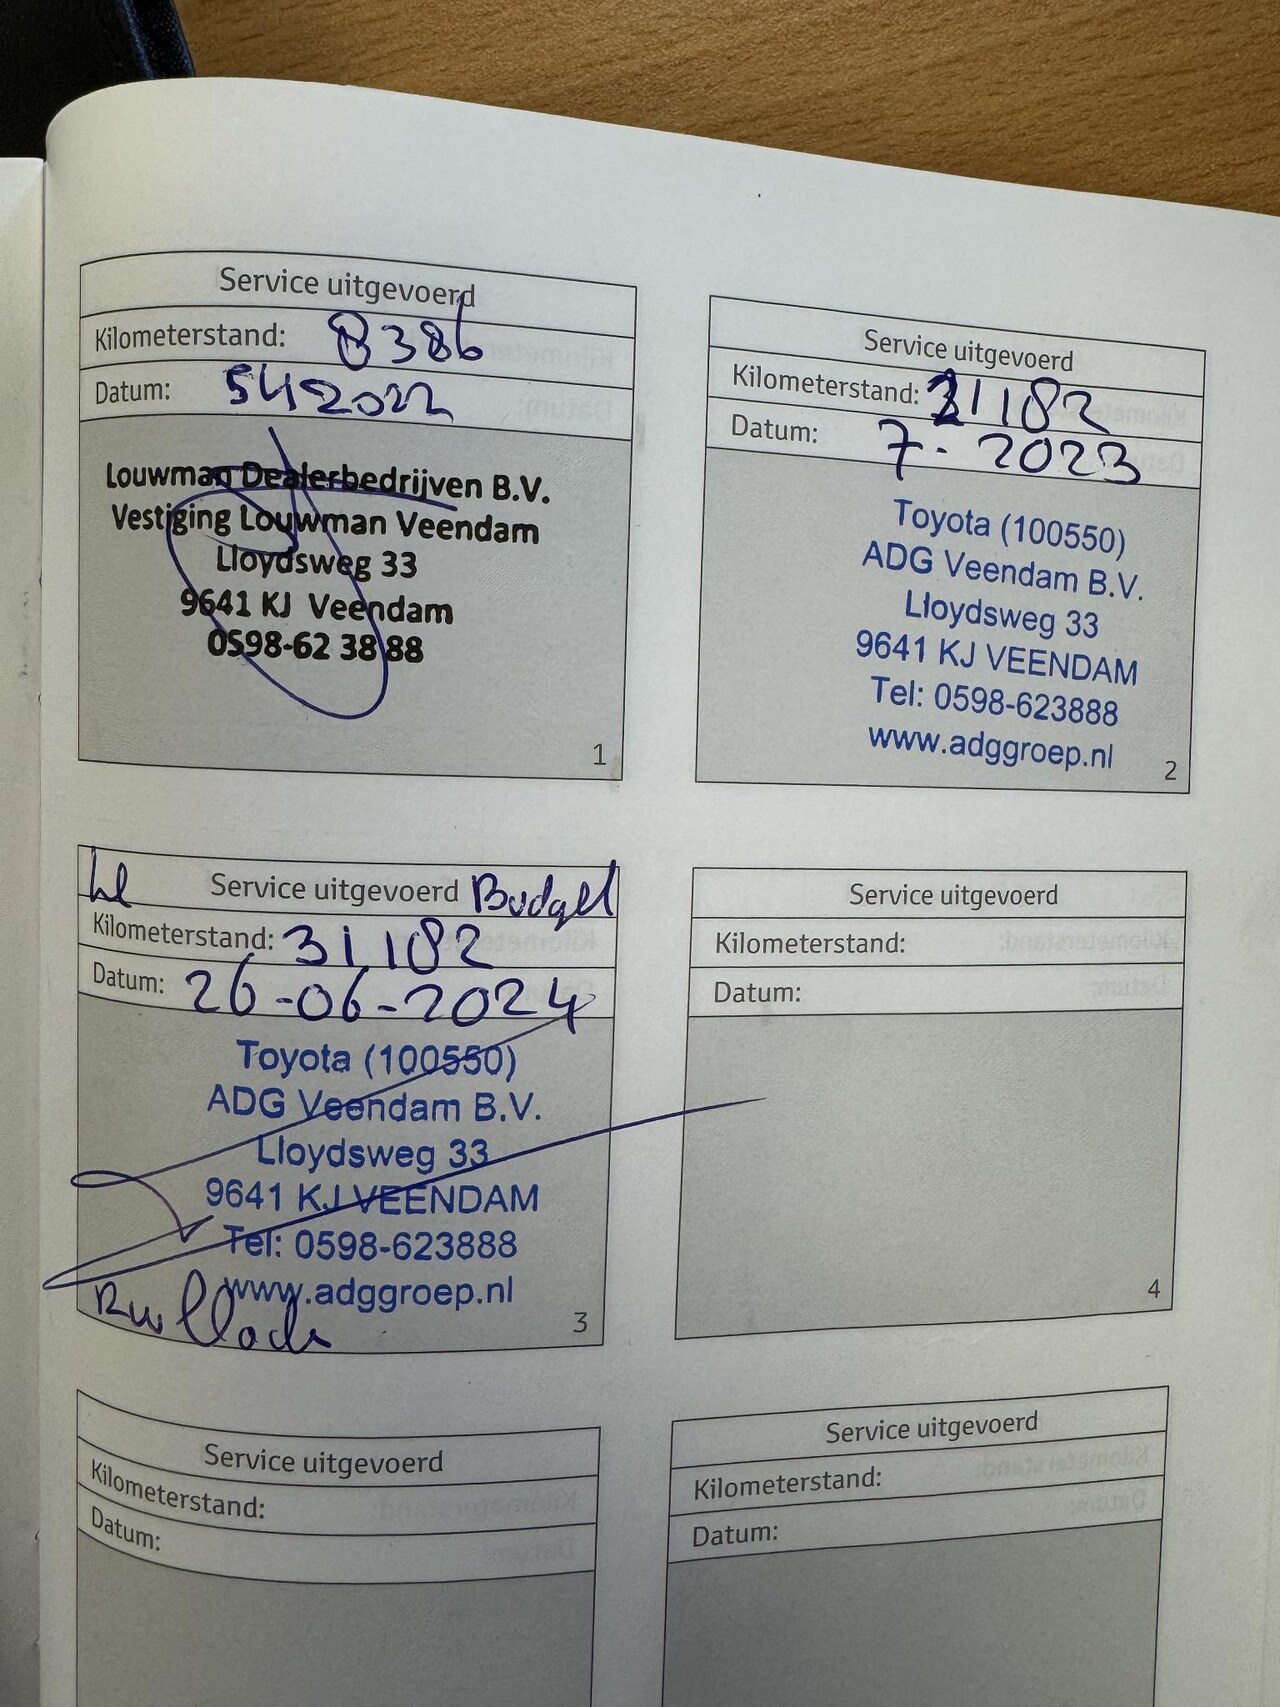 Service uitgevoerd
Kilometerstand: 8386
Datum: 5 4 2022
Louwman Dealerbedrijven B.V.
Vestiging Louwman Veendam
Lloydsweg 33
9641 KJ Veendam
0598-62 38 88
1
Service uitgevoerd
Kilometerstand: 21182
Datum: 7-2023
Toyota (100550)
ADG Veendam B.V.
Lloydsweg 33
9641 KJ VEENDAM
Tel: 0598-623888
www.adggroep.nl
2
Service uitgevoerd Budget
Kilometerstand: 31182
Datum: 26-06-2024
Toyota (100550)
ADG Veendam B.V.
Lloydsweg 33
9641 KJ VEENDAM
Tel: 0598-623888
www.adggroep.nl
3
Service uitgevoerd
Kilometerstand:
Datum:
4
Service uitgevoerd
Kilometerstand:
Datum:
Service uitgevoerd
Kilometerstand:
Datum: